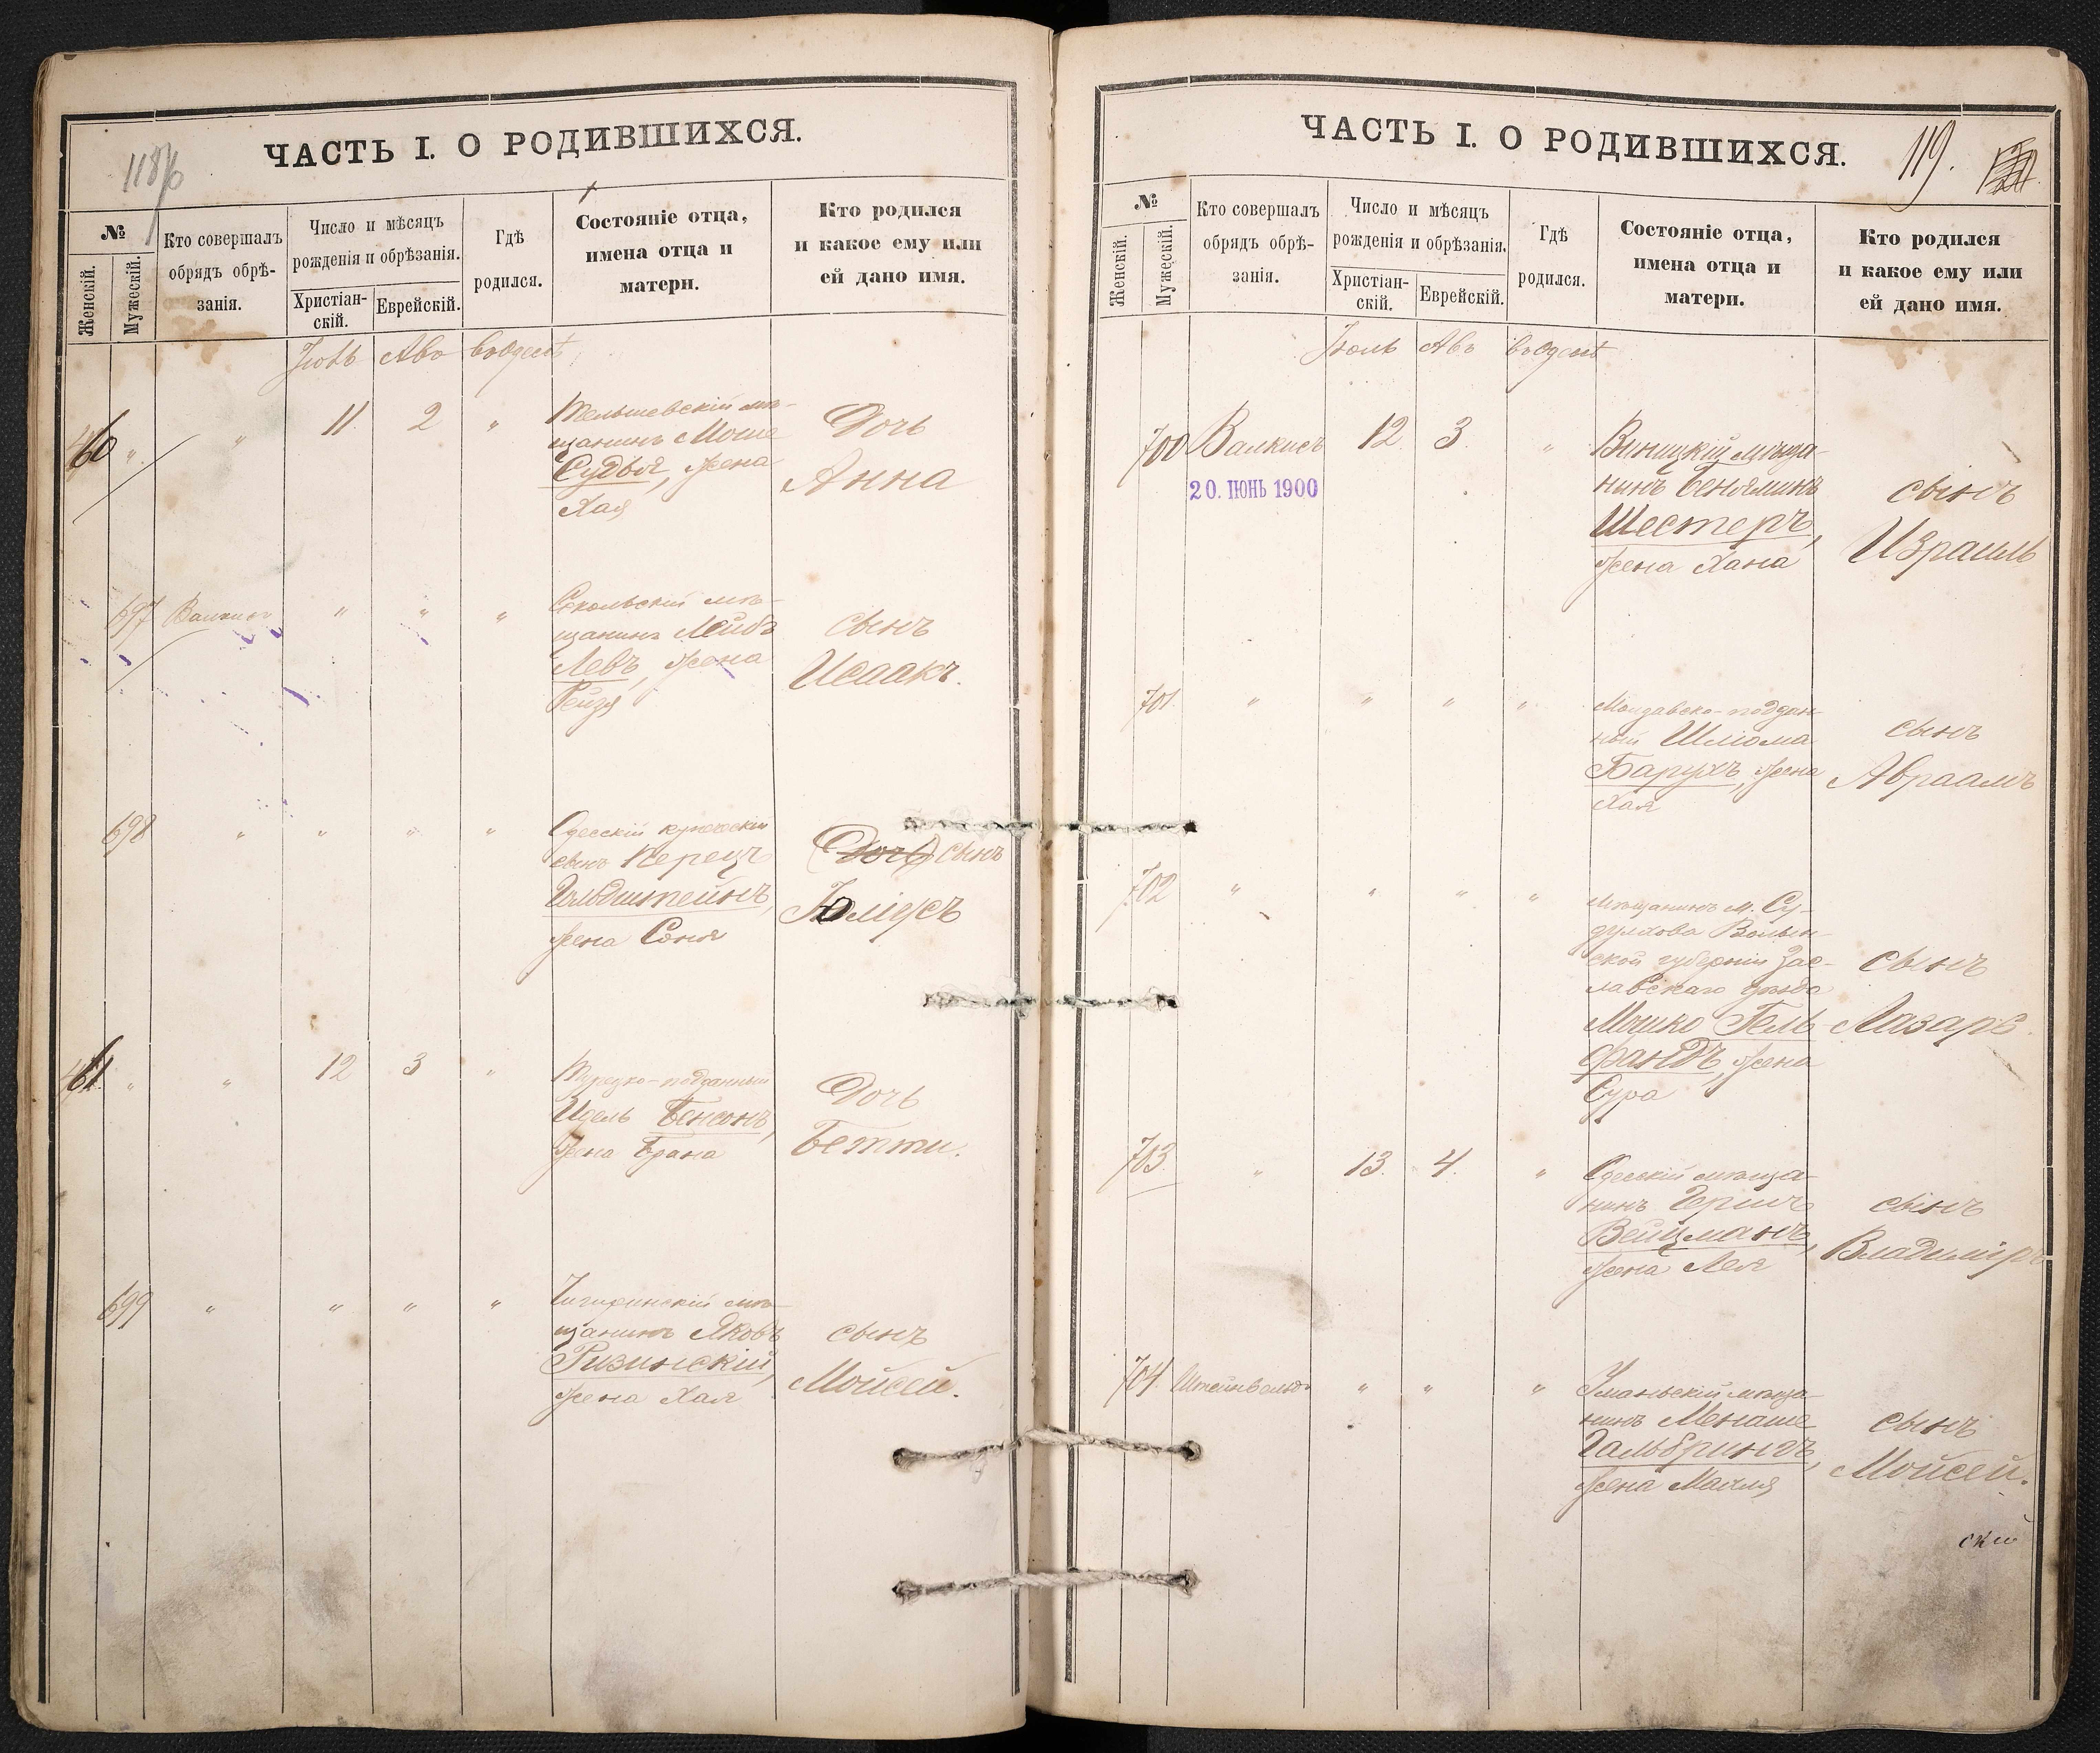 ЧАСТЬ I. О РОДИВШИХСЯ.
№
Женскій.
Мужескій.
Кто совершалъ
обрядъ обрѣ-
занія.
Число и мѣсяцъ
рожденія и обрѣзанія.
Христіан-
скій.
Еврейскій.
Гдѣ
родился.
Состояніе отца,
имена отца и
матери.
Кто родился
и какое ему или
ей дано имя.
Іюль Авъ въ Одессѣ
460 " " 11. 2 "
Тельшевскій мѣ-
щанинъ Моше
Судья, жена
Хая
Дочь
Анна
697 Валкисъ " " "
Сокольскій мѣ-
щанинъ Лейбъ
Левъ, жена
Рейзя
сынъ
Исаакъ.
698 " " " "
Одесскій купеческій
сынъ Перецъ
Гольдштейнъ,
жена Соня
(Дочь) сынъ
Юліусъ
461. " " 12 3 "
Турецко-подданный
Идель Бенсонъ,
жена Брана
Дочь
Бетти.
699 " " " "
Чигиринскій мѣ-
щанинъ Яковъ
Ризинскій,
жена Хая
сынъ
Мойсей.
ЧАСТЬ I. О РОДИВШИХСЯ.
119.
№
Женскій.
Мужескій.
Кто совершалъ
обрядъ обрѣ-
занія.
Число и мѣсяцъ
рожденія и обрѣзанія.
Христіан-
скій.
Еврейскій.
Гдѣ
родился.
Состояніе отца,
имена отца и
матери.
Кто родился
и какое ему или
ей дано имя.
Іюль Авъ въ Одессѣ
700 Валкисъ 12 3 "
20. ІЮНЬ 1900
Виницкій мѣща-
нинъ Беньяминъ
Шестеръ,
жена Хана
сынъ
Израиль
701. " " " "
Молдавско-поддан-
ный Шліома
Барухъ, жена
Хая
сынъ
Авраамъ
702 " " " "
Мѣщанинъ м. Су-
дулкова Волын-
ской губерніи Зас-
лавскаго уѣзда
Мошко Гель-
фандъ, жена
Сура
сынъ
Лазарь.
703. " 13. 4. "
Одесскій мѣща-
нинъ Гершъ
Вейцманъ,
жена Лея
сынъ
Владиміръ
704. Штейнвольдъ " " "
Уманьскій мѣща-
нинъ Менаше
Гальбрингъ,
жена Малля
сынъ
Мойсей.
скій